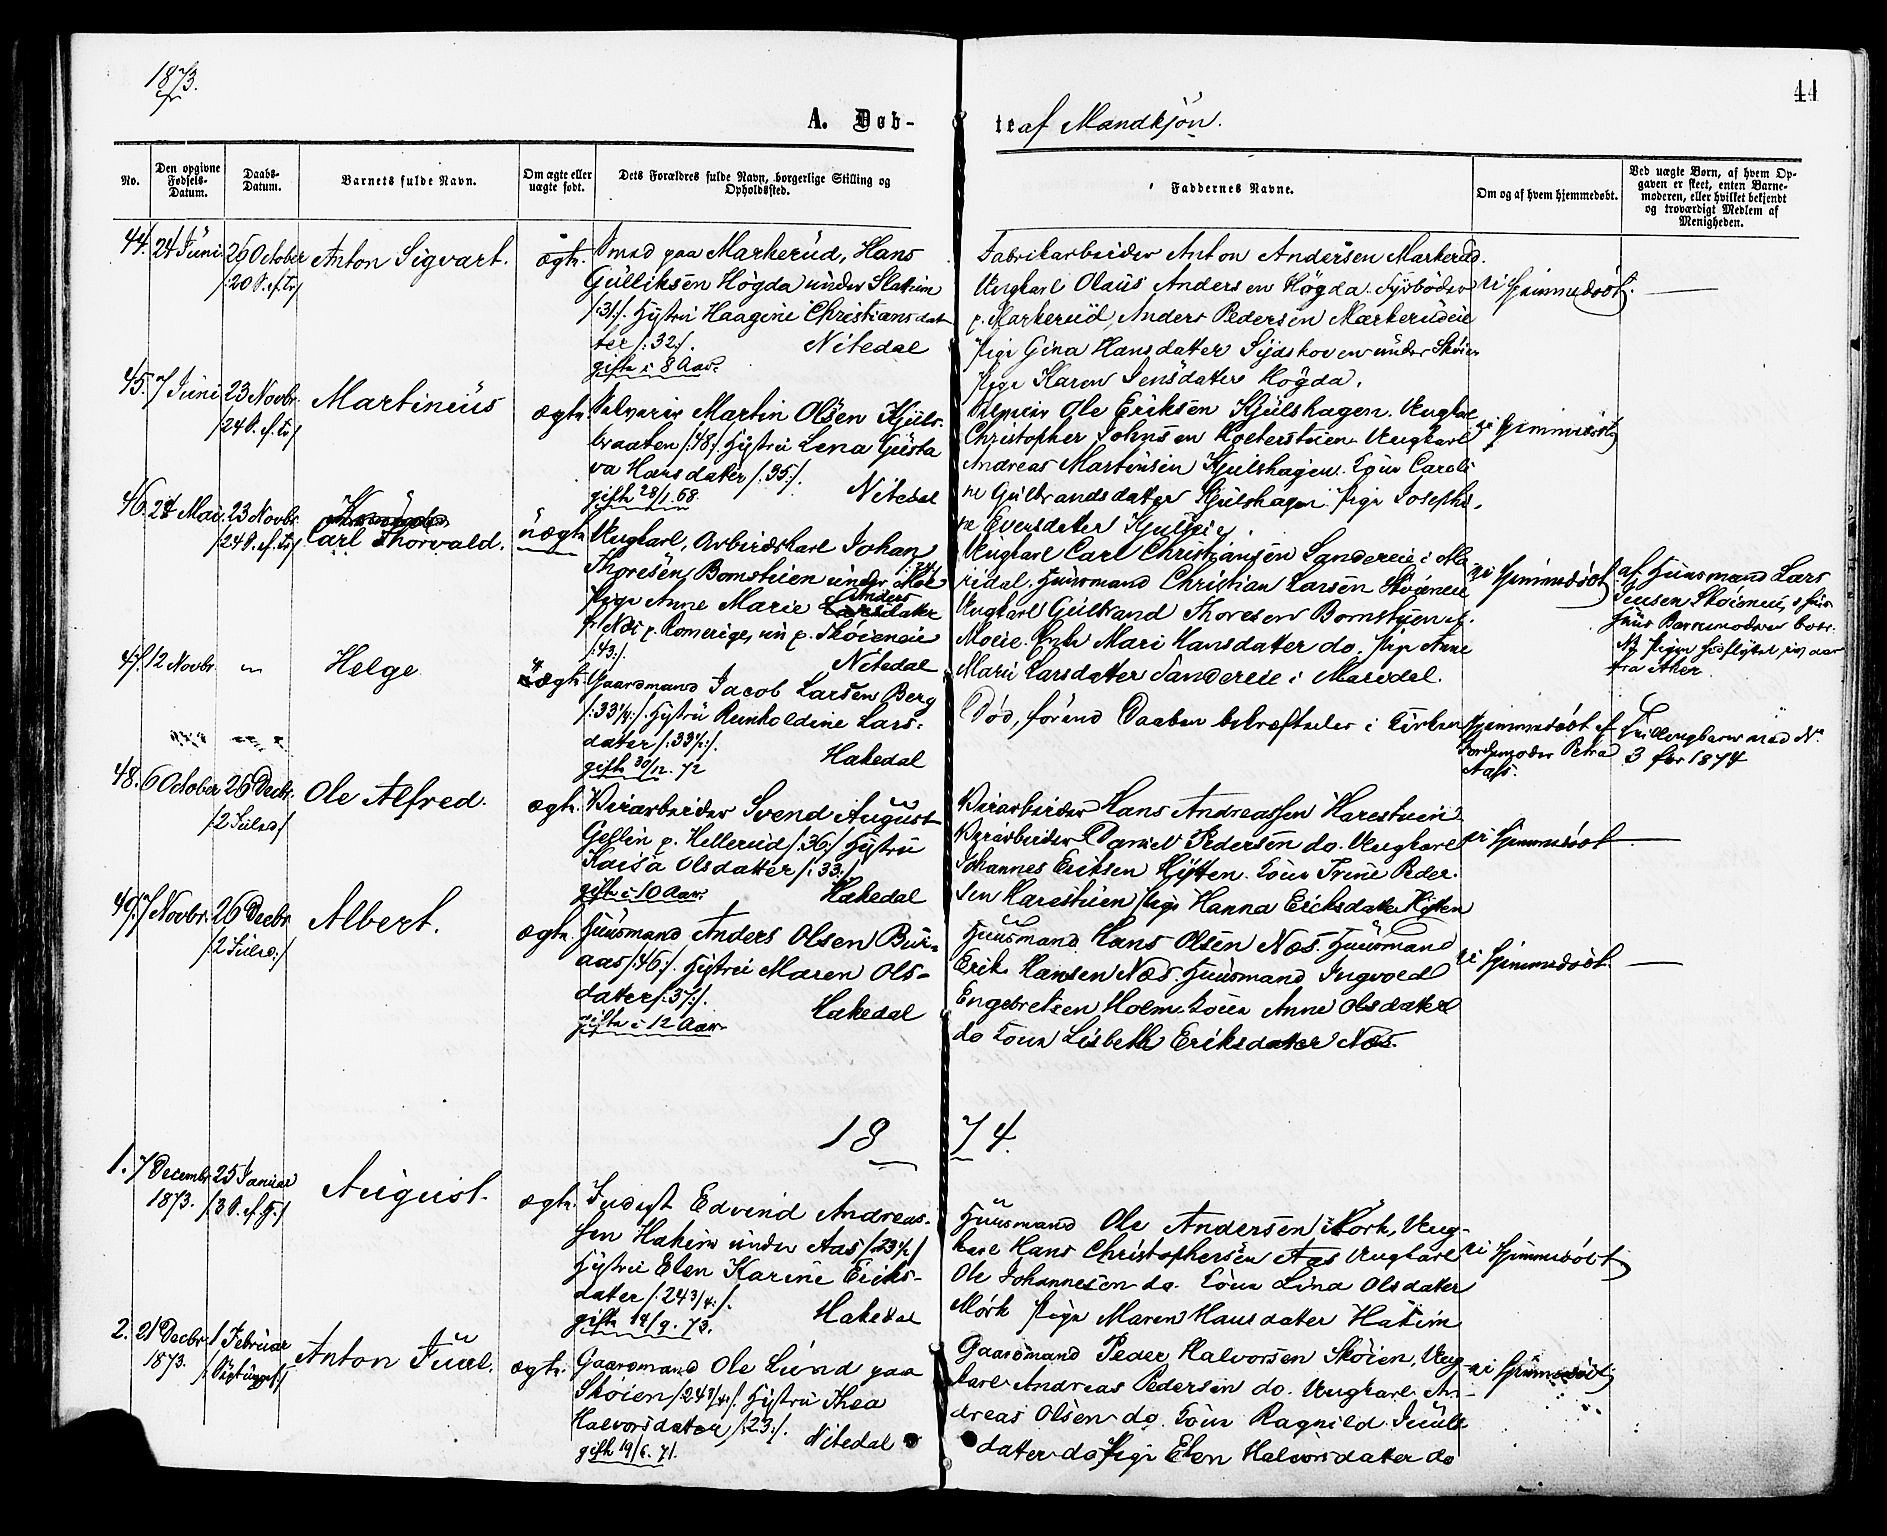 1873.
44
A. Døb-
te af Mandkjön.
No.
Den opgivne Fødsels-Datum.
Daabs-Datum.
Barnets fulde Navn.
Om ægte eller uægte født.
Dets Forældres fulde Navn, borgerlige Stilling og Opholdssted.
Faddernes Navne.
Om og af hvem hjemmedøbt.
Ved uægte Børn, af hvem Op-
gaven er skeet, enten Barne-
moderen, eller hvilket bekjendt
og troværdigt Medlem af
Menigheden.
44. 24 Juni 26 October Anton Sigvart. ægte.
/20 S. ef. Tr/
Smed paa Markerud, Hans
Gulliksen Högda under Slattum
/:31:/. Hustru Haagine Christiansdat
ter /:32:/. Nitedal
gifte i 8 Aar.
Fabrikarbeider Anton Andersen Markerud.
Ungkarl Olaus Andersen Högda. Fyrböder
p. Markerud, Anders Pedersen Markerudeie
Pige Gina Hansdatter Sydskoven under Skøien
Pige Karen Jensdatter Högda.
ei hjemmedøbt.
45. 7 Juni 23 Novbr. Martinius ægte
/24 S. ef. Tr/
Selveier Martin Olsen Kjuls-
braaten /:48:/ Hustru Lena Gusta
va Hansdatter /:35:/.
gifte 28/1 68. Nitedal
Selveier Ole Eriksen Kjulshagen. Ungkarl
Christopher Johnsen Holtersteien. Ungkarl
Andreas Martinsen Kjulshagen. Kone Caroli
ne Gulbrandsdatter Kjulshagen. Pige Josephi-
ne Eversdatter
ei hjemmedøbt
46. 24 Mai 23 Novbr. Carl Thorvald. uægte
/24 S. ef. Tr/
Ungkarl, Arbeidskarl Johan
Thoresen Bomstuen under Moe
Pige Anne Marie Anders
datter
fr. Næs p. Romerige, nu p. Skøieneie
/:43:/. Nitedal
Ungkarl Carl Christiansen Sandereie i Ma
ridal. Huusmand Christian Larsen Skøieneie
Ungkarl Gulbrand Thoresen Bomstuen u.
Moeie. Enke Mari Hansdatter do. Pige Anne
Marie Larsdatter Sandereie i Maridal.
ei hjemmedøbt
af Huusmand Lars
Jensen Skøieneie, i hvis
Huus Barnemoderen boer.
NB Pigen hidflyttet iaar
fra Aker.
47. 12 Novbr. — Helge ægte.
Gaardmand Jacob Larsen Berg
/:33¼:/. Hustru Reinholdine Lars-
datter /:33½:/.
gifte 30/12. 72 Hakedal
Död, förend Daaben bekræftedes i Kirken
Hjemmedøbt af
Jordemoder Petra
Aas.
Tvillingbarn med No.
3 for 1874
48. 6 October 26 Decbr. Ole Alfred. ægte.
/2 Juled/
Veiarbeider Svend August
Gesslin p. Hellerud /:36:/ Hustru
Kaisa Olsdatter /:33:/
gifte i 10 Aar. Hakedal
Veiarbeider Hans Andreassen Harestuen
Veiarbeider Daniel Pedersen do. Ungkarl
Johannes Eriksen Hytten. Kone Trine Peder-
sen Harestuen Pige Hanna Eriksdatter Hytten
ei hjemmedøbt
49. 7 Novbr. 26 Decbr Albert. ægte.
/2 Juled:/
Huusmand Anders Olsen Bur-
aas /:46:/. Hustru Maren Ols-
datter /:37:/.
gifte i 12 Aar. Hakedal
Huusmand Hans Olsen Næs. Huusmand
Erik Hansen Næs. Huusmand Ingvold
Engebretsen Holm. Kone Anne Olsdatter
do Kone Lisbeth Eriksdatter Næs.
ei hjemmedøbt.
1874.
1. 7 Decembr 25 Januar August. ægte.
1873. /3 S. ef. H.:/
Inderst Edvind Andreas-
sen Hakim under Aas /:23½/
Hustru Elen Karine Eriks-
datter /:24¾:/.
gifte 19/9. 73. Hakedal
Huusmand Ole Andersen Mörk, Ung-
karl Hans Christophersen Aas Ungkarl
Ole Johannesen do. Kone Lina Olsdatter
Mörk Pige Maren Hansdatter Hakim
ei hjemmedøbt
2. 21 Decbr 1 Februar Anton Juul. ægte.
1873.
Gaardmand Ole Lund paa
Skøien /:24¾:/. Hustru Thea
Halvorsdatter /:23:/.
gifte 19/6. 71. Nitedal
Gaardmand Peder Halvorsen Skøien, Ung-
karl Andreas Pedersen do. Ungkarl An-
dreas Olsen do. Kone Ragnild Juuls
datter do Pige Elen Halvorsdatter do
ei hjemmedøbt